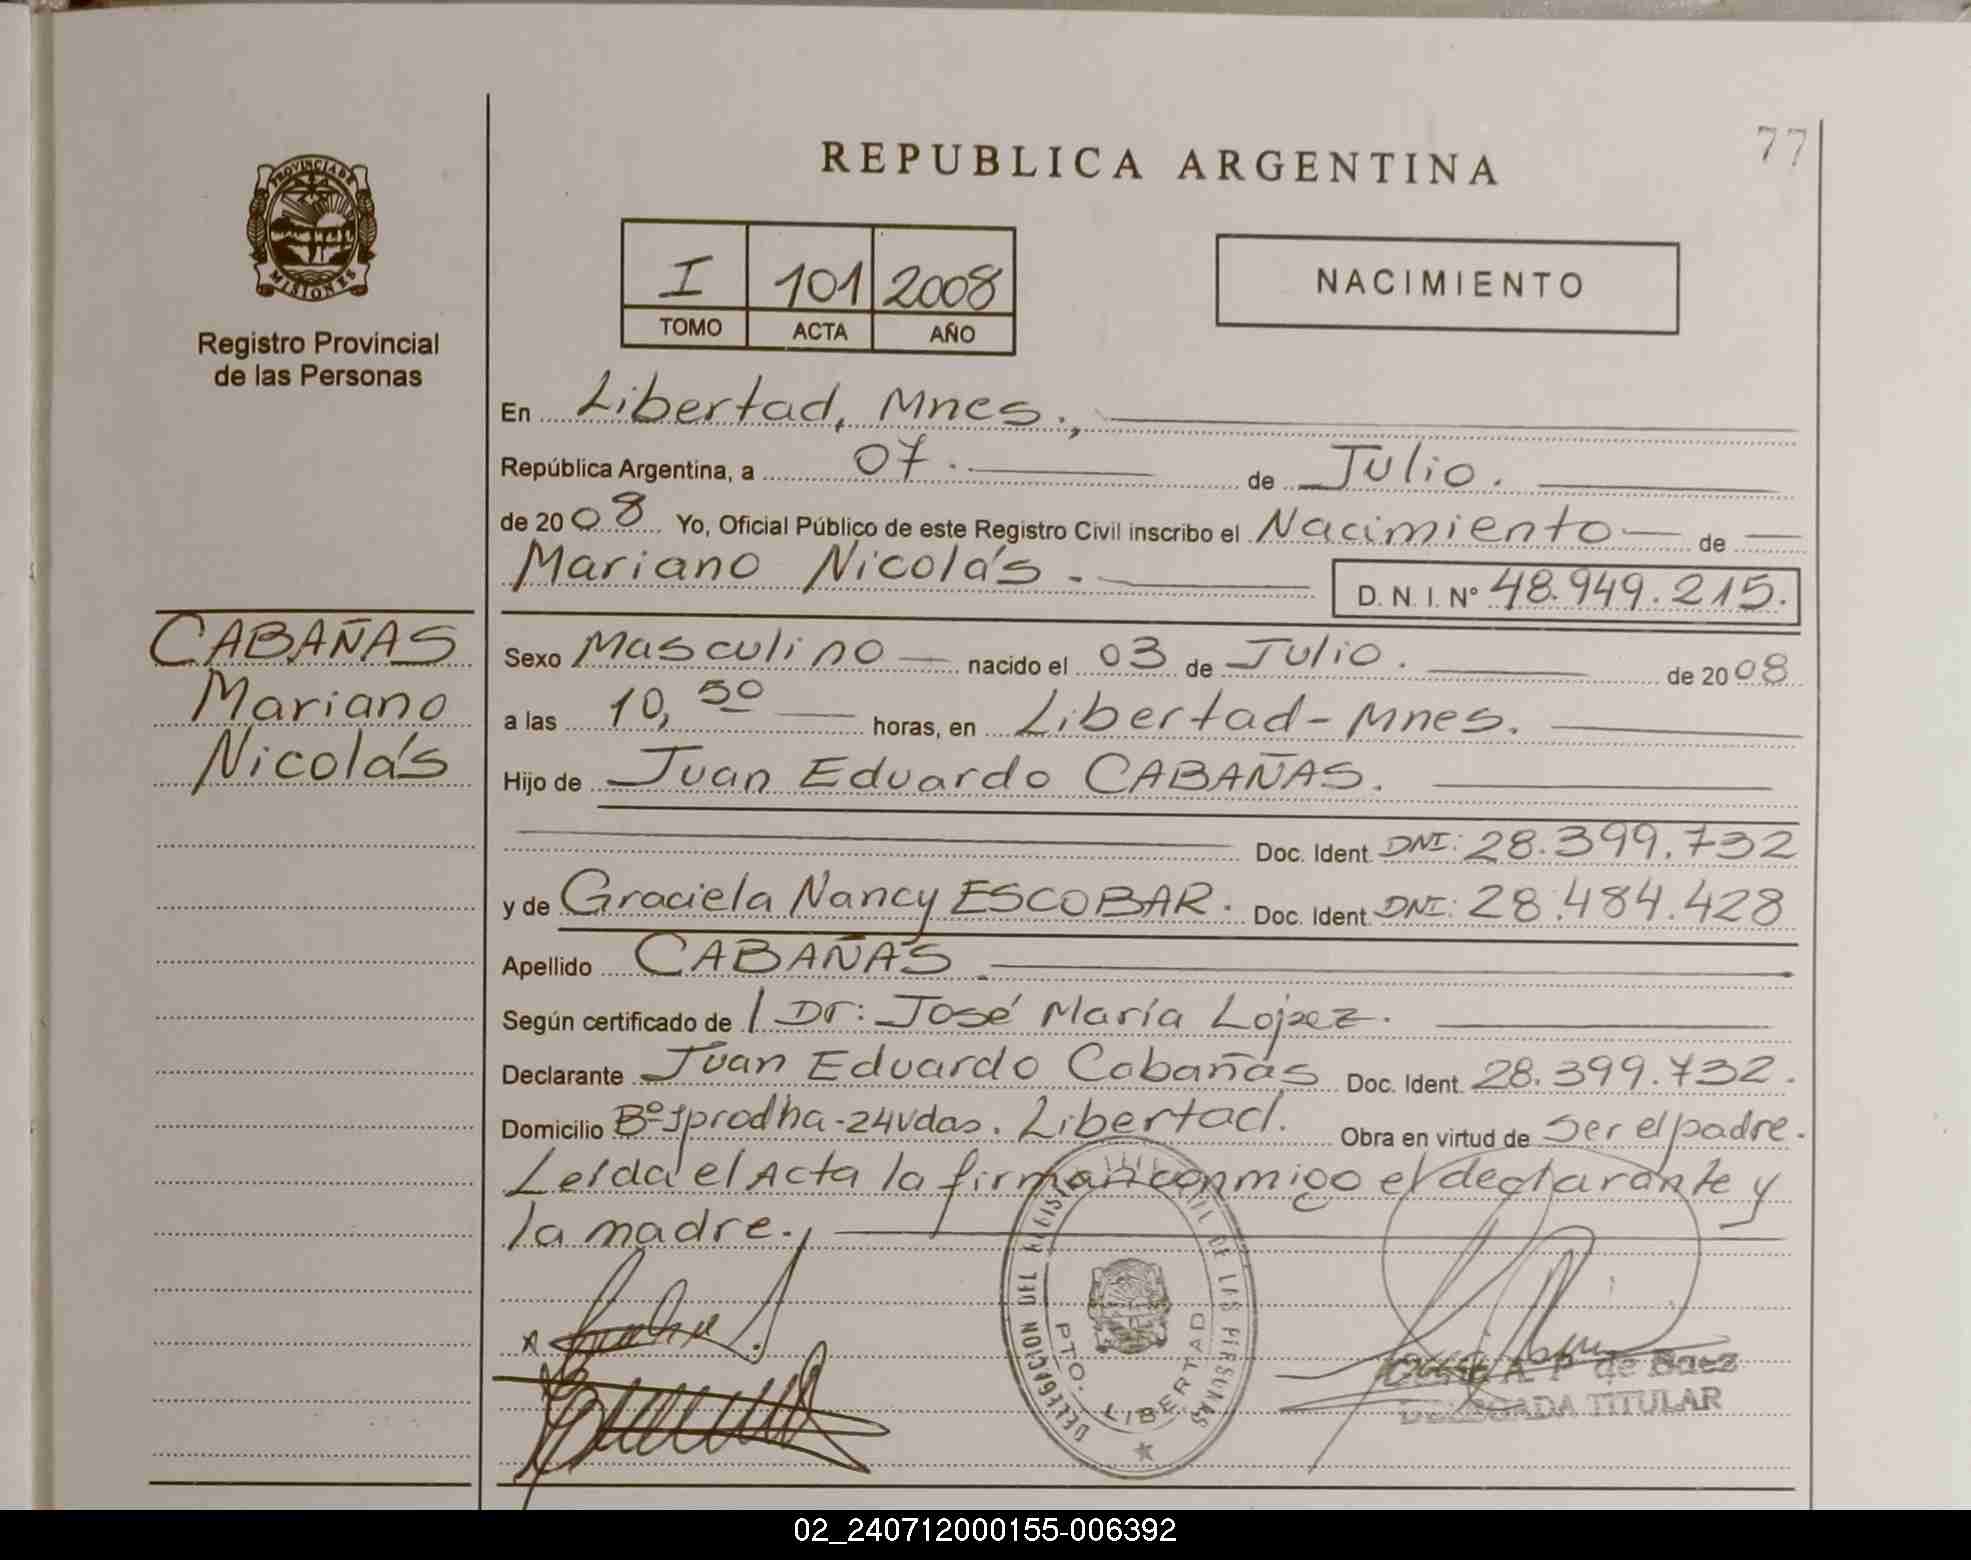 77
REPUBLICA ARGENTINA
PROVINCIA DE
MISIONES
Registro Provincial
de las Personas
I 101 2008
TOMO ACTA AÑO
NACIMIENTO
En Libertad, Mnes.,
República Argentina, a 07. de Julio.
de 2008 Yo, Oficial Público de este Registro Civil inscribo el Nacimiento de
Mariano Nicolás. D. N. I. N° 48.949.215.
CABAÑAS
Mariano
Nicolás
Sexo Masculino nacido el 03 de Julio. de 2008
a las 10,50 horas, en Libertad - Mnes.
Hijo de Juan Eduardo CABAÑAS.
Doc. Ident. DNI: 28.399.732
y de Graciela Nancy ESCOBAR. Doc. Ident. DNI: 28.484.428
Apellido CABAÑAS
Según certificado de / Dr: José María López.
Declarante Juan Eduardo Cabañas Doc. Ident. 28.399.732.
Domicilio Bº Iprodha - 24 vdas. Libertad. Obra en virtud de ser el padre.
Leída el Acta la firman conmigo el declarante y
la madre.
DELEGACION DEL REGISTRO CIVIL DE LAS PERSONAS
PTO. LIBERTAD
A. P. de Baez
DELEGADA TITULAR
02_240712000155-006392